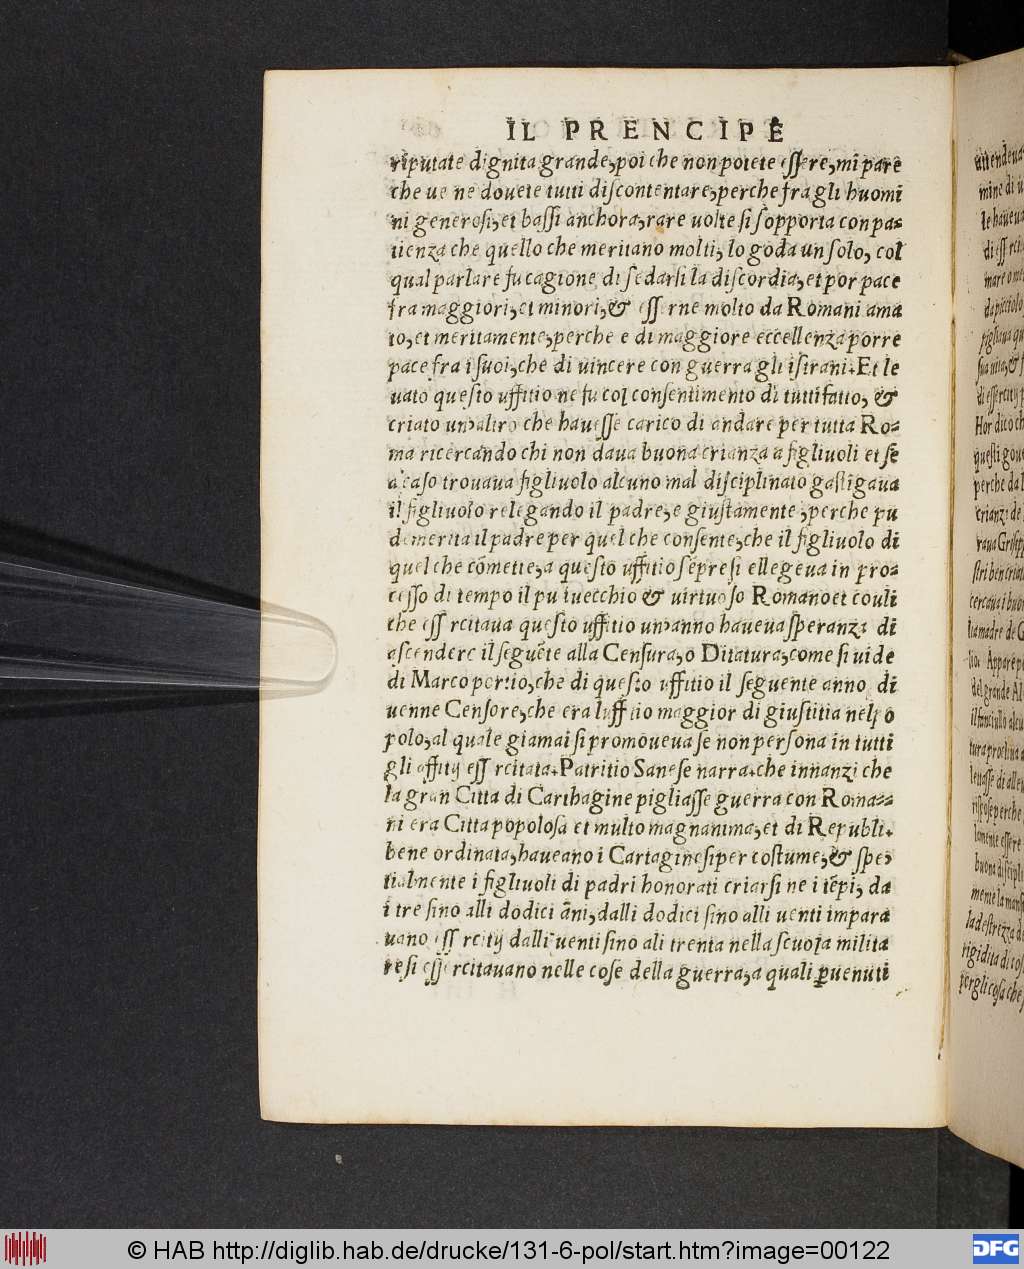 IL PRENCIPE
riputate dignita grande, poi che non potete eſſere, mi pare
che ue ne douete tutti diſcontentare, perche fra gli huomī
ni generoſi, et baſſi anchora, rare uolte ſi ſopporta con pa-
tienza che quello che meritano molti, lo goda un ſolo, col
qual parlare fu cagione di ſedarſi la diſcordia, et por pace
fra maggiori, et minori, & eſſerne molto da Romani ama
to, et meritamente, perche e di maggiore eccellenza porre
pace fra i ſuoi, che di uincere con guerra gli iſtrani. Et le
uato queſto uffitio ne fu col conſentimento di tutti fatto, &
criato un'altro che haueſſe carico di andare per tutta Ro-
ma ricercando chi non daua buona crianza a figliuoli et ſe
a caſo trouaua figliuolo alcuno mal diſciplinato gaſtigaua
il figliuolo relegando il padre, e giuſtamente, perche piu
demerita il padre per quel che conſente, che il figliuolo di
quel che cōmette, a queſto uffitio ſēpre ſi ellegeua in pro-
ceſſo di tempo il piu uecchio & uirtuoſo Romano et coui
che eſſercitaua queſto uffitio un'anno haueua ſperanza di
aſcendere il ſeguēte alla Cenſura, o Ditatura, come ſi uide
di Marco portio, che di queſto uffitio il ſeguente anno di
uenne Cenſore, che era l'uffitio maggior di giuſtitia nel po
polo, al quale giamai ſi promoueua ſe non perſona in tutti
gli offitij eſſercitata. Patritio Saneſe narra. che innanzi che
la gran Citta di Carthagine pigliaſſe guerra con Roma-
ni era Citta popoloſa et multo magnanima, et di Republi.
bene ordinata, haueano i Cartagineſi per coſtume, & ſpe,
tialmente i figliuoli di padri honorati criarſi ne i tēpi, da
i tre ſino alli dodici āni, dalli dodici ſino alli uenti impara
uano eſſercitij dalli uenti ſino ali trenta nella ſcuola milita
re ſi eſſercitauano nelle coſe della guerra, a quali ꝑuenuti
© HAB http://diglib.hab.de/drucke/131-6-pol/start.htm?image=00122
DFG